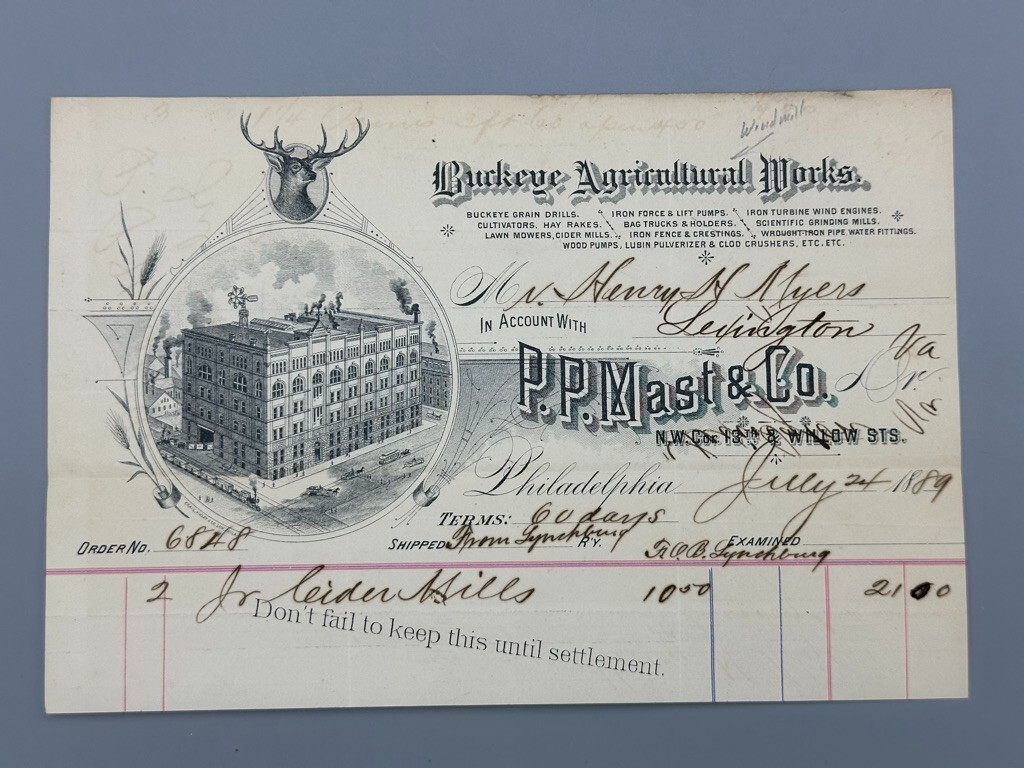 Windmill
Buckeye Agricultural Works.
BUCKEYE GRAIN DRILLS. IRON FORCE & LIFT PUMPS. IRON TURBINE WIND ENGINES.
CULTIVATORS, HAY RAKES. BAG TRUCKS & HOLDERS. SCIENTIFIC GRINDING MILLS.
LAWN MOWERS, CIDER MILLS. IRON FENCE & CRESTINGS. WROUGHT-IRON PIPE, WATER FITTINGS.
WOOD PUMPS, LUBIN PULVERIZER & CLOD CRUSHERS, ETC. ETC.
Mr. Henry H Myers
Lexington Va
IN ACCOUNT WITH
P.P. Mast & Co. Dr.
N.W. Cor. 13TH & WILLOW STS.
Philadelphia July 24 1889
TERMS: 60 days
ORDER NO. 6848 SHIPPED From Lynchburg R'Y. EXAMINED
F.O.B. Lynchburg
2 Jr. Cider Mills 10 50 21 00
Don't fail to keep this until settlement.